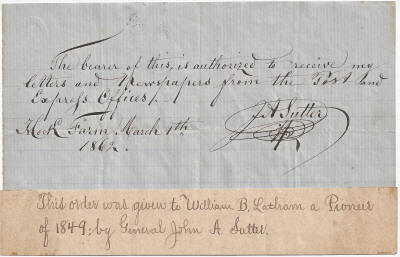 The bearer of this, is authorized to receive my
letters and Newspapers from the Post and
Express Offices/.
Hock Farm March 1th
1862.
J A Sutter
This order was given to William B. Latham a Pioneer
of 1849; by General John A. Sutter.